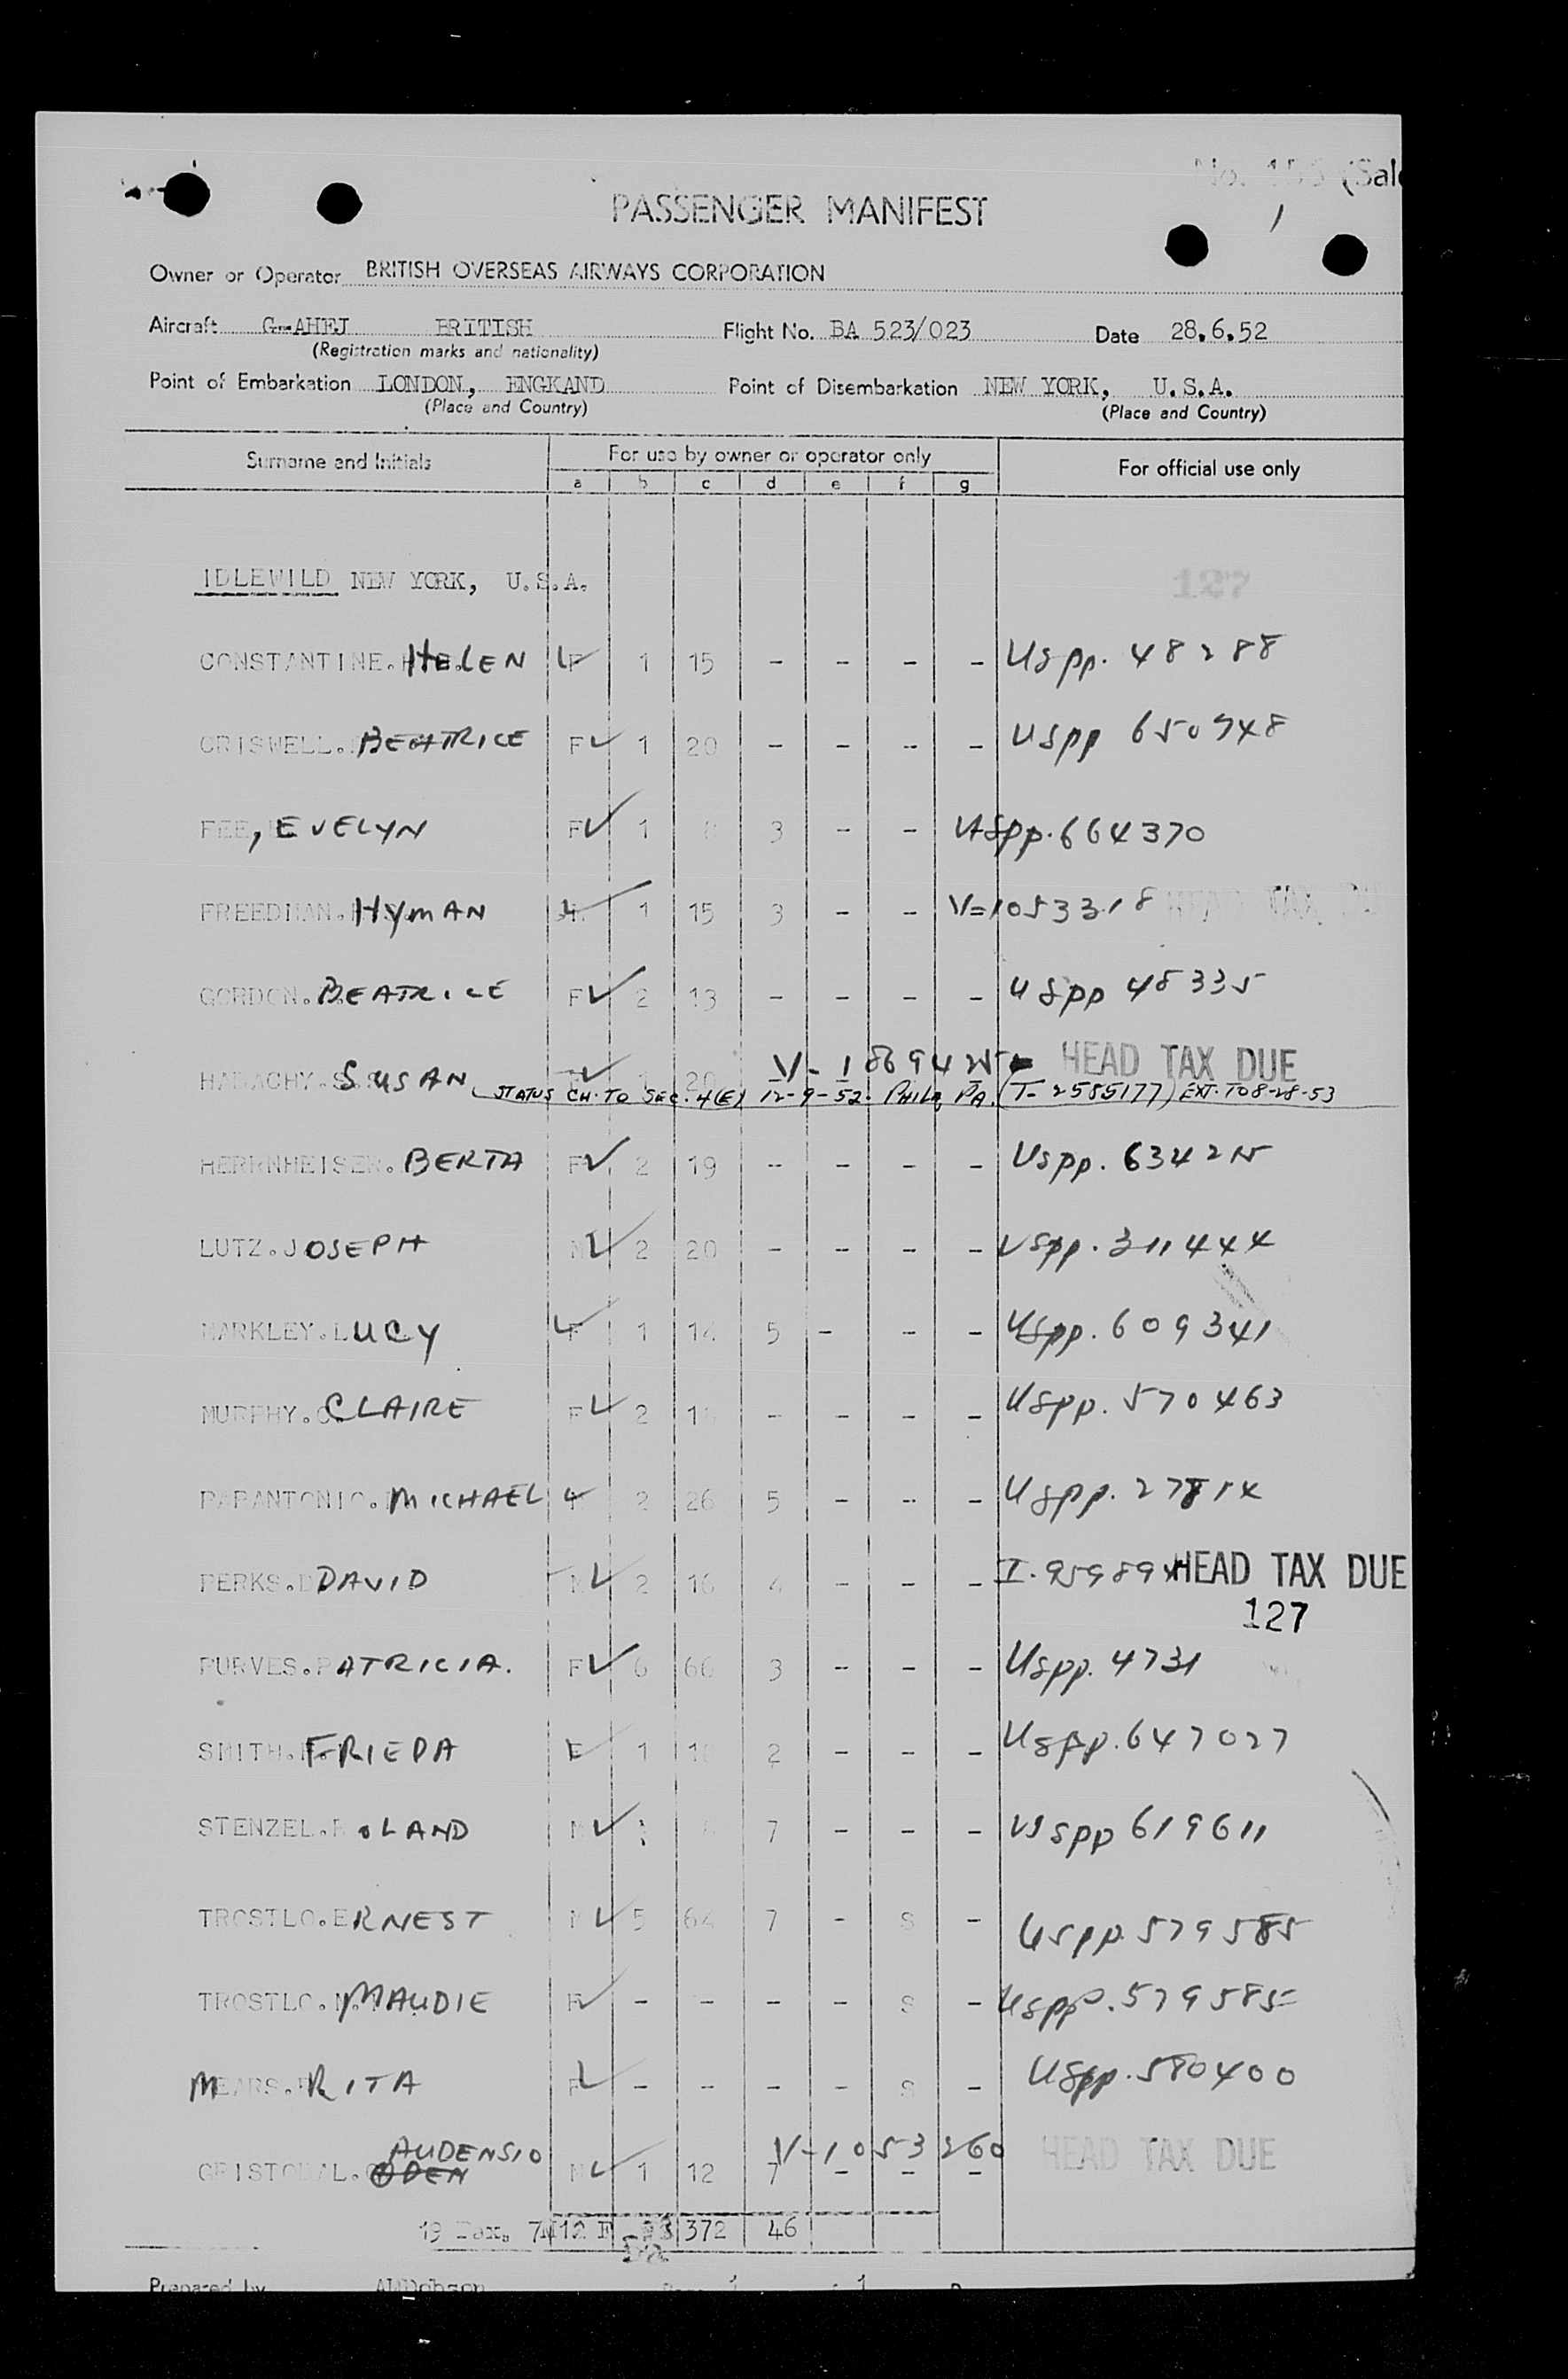 No. 155 (Sale
1
PASSENGER MANIFEST
Owner or Operator BRITISH OVERSEAS AIRWAYS CORPORATION
Aircraft G-AHEJ BRITISH Flight No. BA 523/023 Date 28.6.52
(Registration marks and nationality)
Point of Embarkation LONDON, ENGKAND Point of Disembarkation NEW YORK, U.S.A.
(Place and Country) (Place and Country)
Surname and Initials For use by owner or operator only For official use only
a b c d e f g
IDLEWILD NEW YORK, U.S.A. 127
CONSTANTINE. HELEN F 1 15 - - - - USpp. 48288
CRISWELL. BEATRICE F 1 20 - - - - USpp 650948
FEE, EVELYN F 1 8 3 - - USpp. 664370
FREEDMAN. HYMAN 1 15 3 - - V=1053318 HEAD TAX DU
GORDON. BEATRICE F 2 13 - - - - USpp 48335
SUSAN 20 HEAD TAX DUE
STATUS CH. TO SEC. 4(E) 12-9-52. PHILA PA. (T-2585177) EXT. TO 8-28-53
BERTA F 2 19 - - - - USpp.
LUTZ. JOSEPH M 2 20 - - - - USpp. 311444
MARKLEY. LUCY F 1 14 5 - - - USpp. 609341
MURPHY. CLAIRE F 2 - - - - USpp. 570463
PAPANTONIO. MICHAEL 2 26 5 - - - USpp. 27814
PERKS. DAVID M 2 16 4 - - - HEAD TAX DUE
127
PURVES. PATRICIA. F 6 66 3 - - - USpp. 4731
SMITH. FRIEDA F 1 2 - - - USpp. 647027
STENZEL. ROLAND M 7 - - - USpp 619611
TROSTLO. ERNEST M 5 64 7 - S - USpp. 579585
TROSTLO. MAUDIE F - - - - S - USpp. 579585
MEARS. RITA F - - - - S - USpp. 580400
AUDENSIO V-1053260 HEAD TAX DUE
CRISTOBAL. ODEN M 1 12 7 - - -
19 Pax. 7M 12 F 372 46
Prepared by